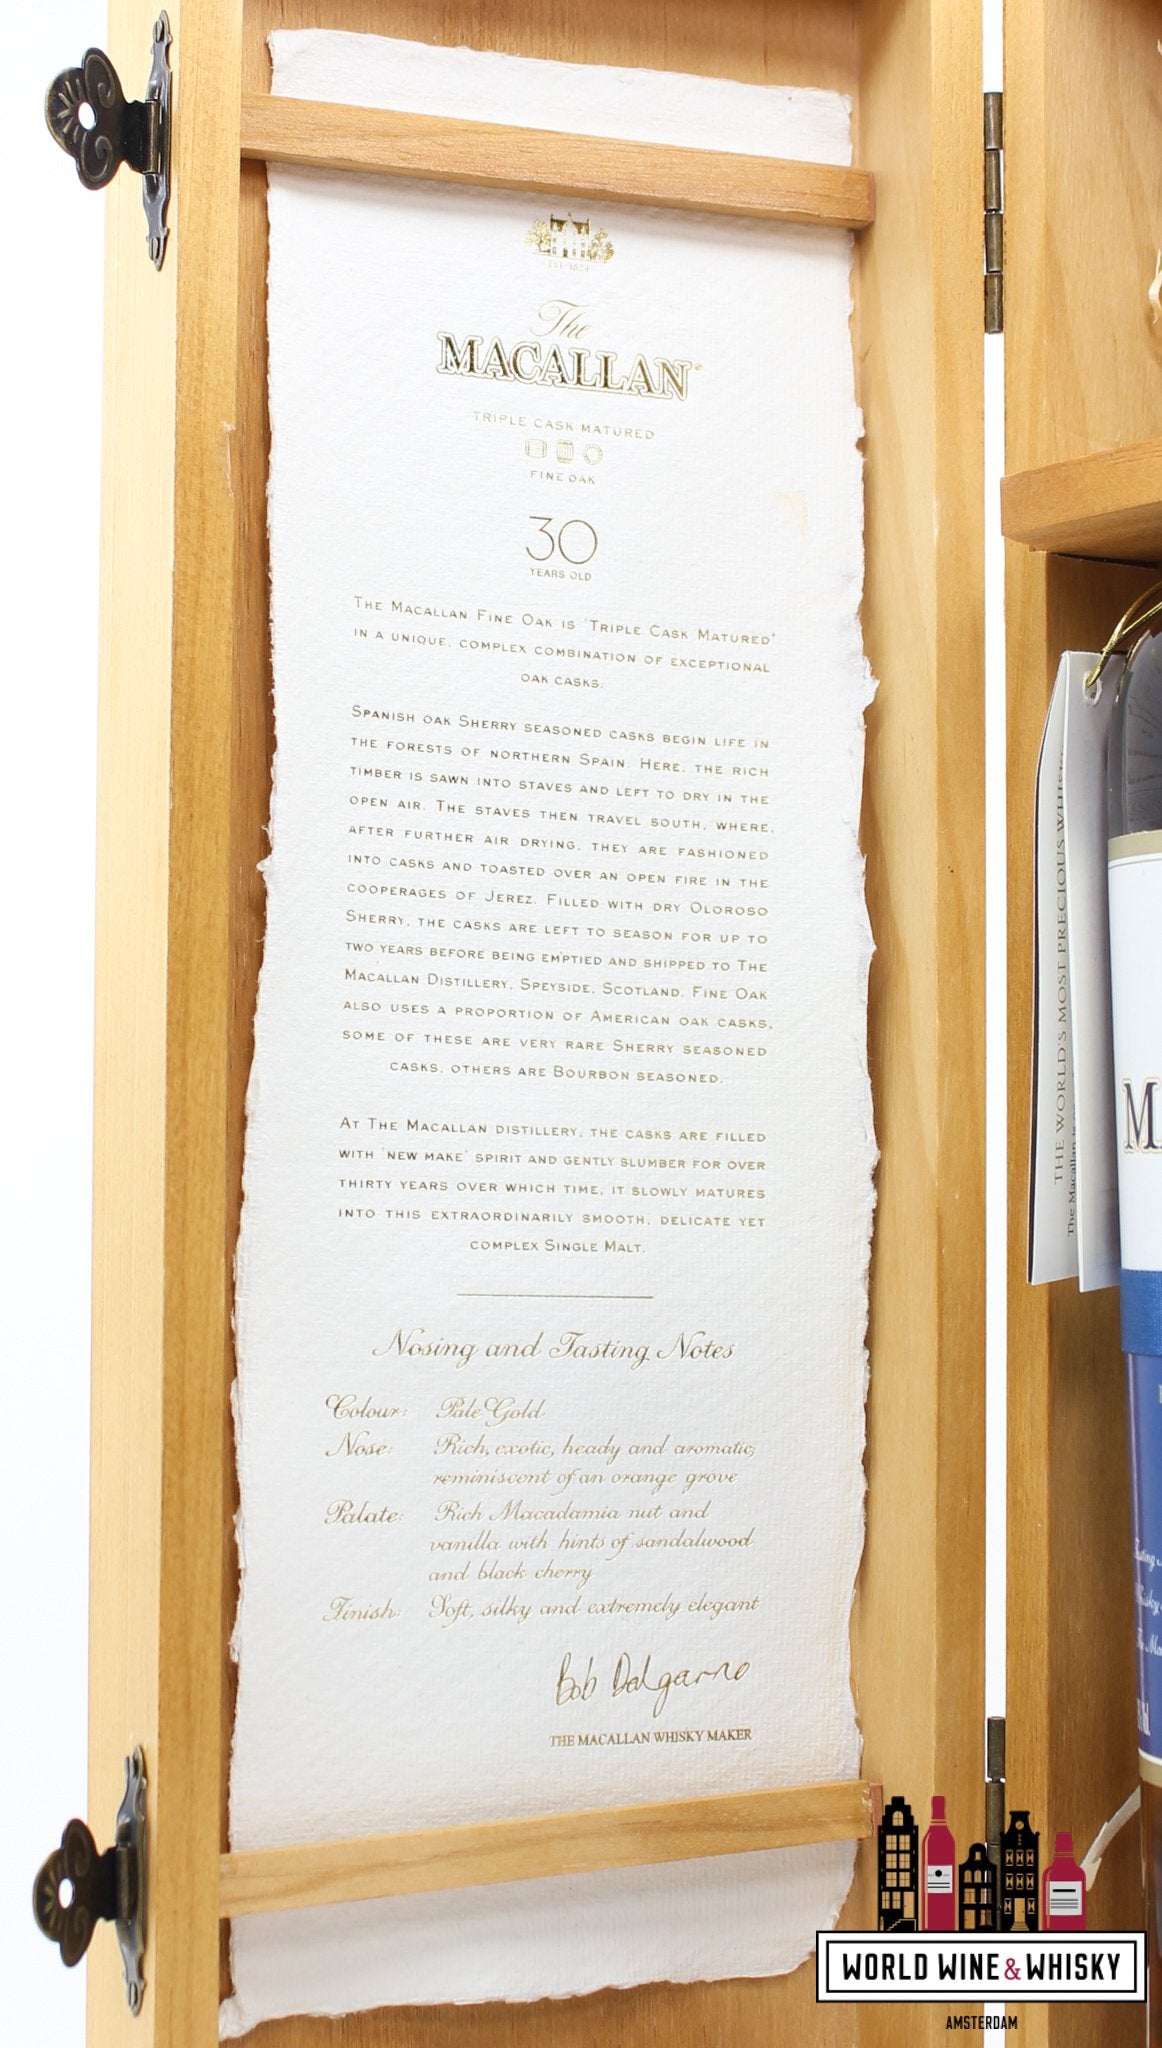 EST. 1824
The
MACALLAN
TRIPLE CASK MATURED
FINE OAK
30
YEARS OLD
THE MACALLAN FINE OAK IS 'TRIPLE CASK MATURED'
IN A UNIQUE, COMPLEX COMBINATION OF EXCEPTIONAL
OAK CASKS.
SPANISH OAK SHERRY SEASONED CASKS BEGIN LIFE IN
THE FORESTS OF NORTHERN SPAIN. HERE, THE RICH
TIMBER IS SAWN INTO STAVES AND LEFT TO DRY IN THE
OPEN AIR. THE STAVES THEN TRAVEL SOUTH, WHERE,
AFTER FURTHER AIR DRYING, THEY ARE FASHIONED
INTO CASKS AND TOASTED OVER AN OPEN FIRE IN THE
COOPERAGES OF JEREZ. FILLED WITH DRY OLOROSO
SHERRY, THE CASKS ARE LEFT TO SEASON FOR UP TO
TWO YEARS BEFORE BEING EMPTIED AND SHIPPED TO THE
MACALLAN DISTILLERY, SPEYSIDE, SCOTLAND. FINE OAK
ALSO USES A PROPORTION OF AMERICAN OAK CASKS,
SOME OF THESE ARE VERY RARE SHERRY SEASONED
CASKS, OTHERS ARE BOURBON SEASONED.
AT THE MACALLAN DISTILLERY, THE CASKS ARE FILLED
WITH 'NEW MAKE' SPIRIT AND GENTLY SLUMBER FOR OVER
THIRTY YEARS OVER WHICH TIME, IT SLOWLY MATURES
INTO THIS EXTRAORDINARILY SMOOTH, DELICATE YET
COMPLEX SINGLE MALT.
Nosing and Tasting Notes
Colour: Pale Gold
Nose: Rich, exotic, heady and aromatic,
reminiscent of an orange grove
Palate: Rich Macadamia nut and
vanilla with hints of sandalwood
and black cherry
Finish: Soft, silky and extremely elegant
Bob Dalgarno
THE MACALLAN WHISKY MAKER
THE WORLD'S MOST PRECIOUS WHISKY
The Macallan is
M
WORLD WINE & WHISKY
AMSTERDAM